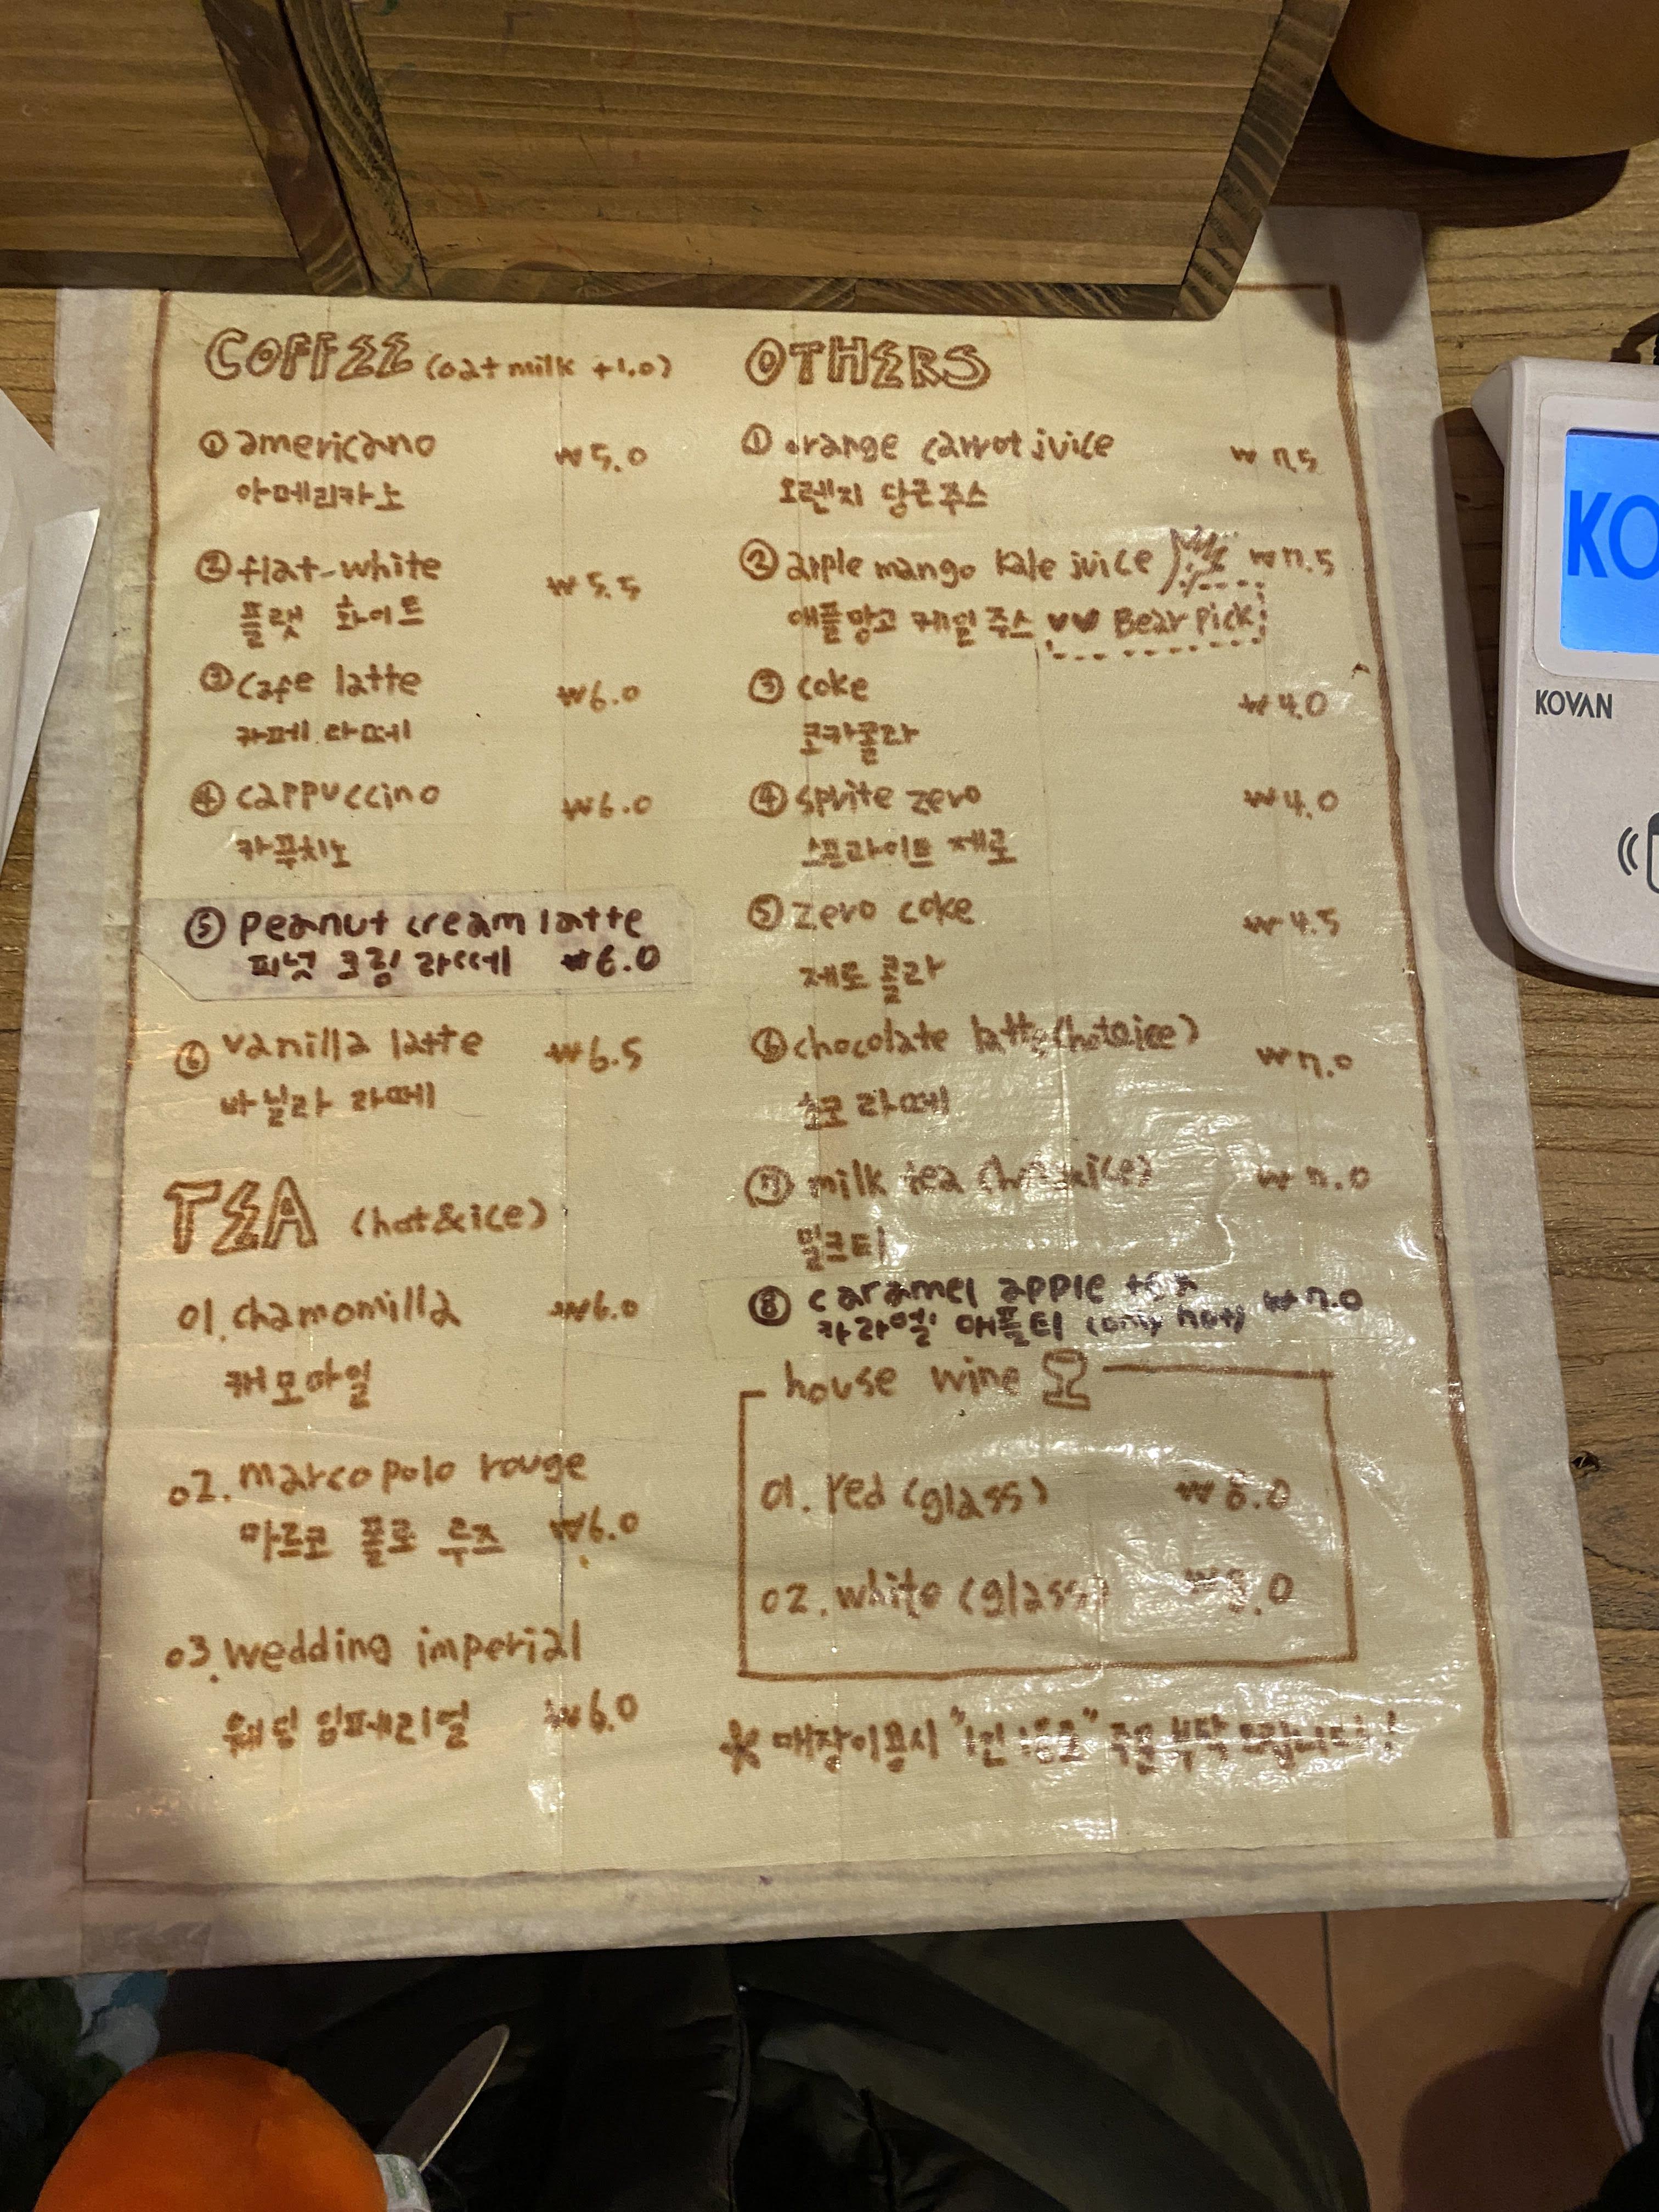 COFFEE (oat milk +1.0)
① americano ₩5.0
아메리카노
② flat-white ₩5.5
플랫 화이트
③ cafe latte ₩6.0
카페 라떼
④ cappuccino ₩6.0
카푸치노
⑤ peanut cream latte
피넛 크림 라떼 ₩6.0
⑥ vanilla latte ₩6.5
바닐라 라떼
TEA (hot&ice)
01. chamomilla ₩6.0
캐모마일
02. marco polo rouge
마르코 폴로 루즈 ₩6.0
03. wedding imperial
웨딩 임페리얼 ₩6.0
OTHERS
① orange carrot juice ₩7.5
오렌지 당근주스
② apple mango kale juice ₩7.5
애플망고 케일주스 ♥♥ Bear Pick
③ coke ₩4.0
코카콜라
④ sprite zero ₩4.0
스프라이트 제로
⑤ zero coke ₩4.5
제로 콜라
⑥ chocolate latte (hot&ice) ₩7.0
초코 라떼
⑦ milk tea (hot&ice) ₩7.0
밀크티
⑧ caramel apple tea ₩7.0
카라멜 애플티 (only hot)
house wine
01. red (glass) ₩8.0
02. white (glass) ₩8.0
* 매장이용시 "1인 1음료" 주문 부탁 드립니다!
KO
KOVAN